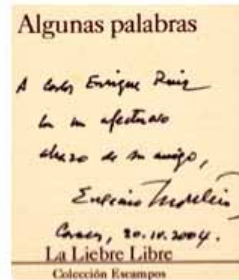 Algunas palabras
A Carlos Enrique Ruiz
con un afectuoso
abrazo de su amigo,
Eugenio Montejo
Caracas, 20.IV.2004.
La Liebre Libre
Colección Escampos